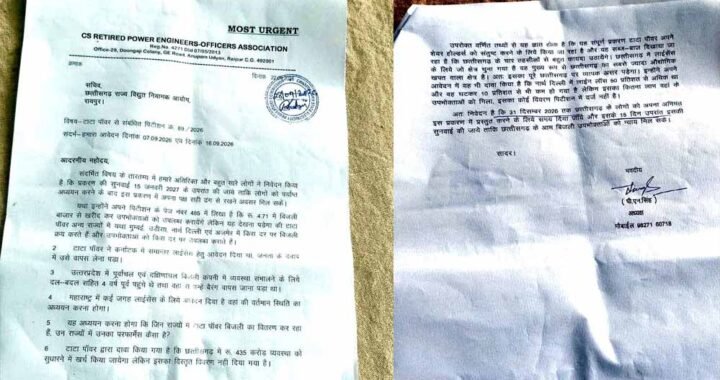 MOST URGENT
CS RETIRED POWER ENGINEERS-OFFICERS ASSOCIATION
Reg.No. 4271 Dtd 07/05/2013
Office-29, Doongaji Colony, GE Road, Anupam Udyan, Raipur C.G. 492001
क्रमांक
दिनांक
सचिव,
छत्तीसगढ़ राज्य विद्युत नियामक आयोग,
रायपुर।
विषय:-टाटा पॉवर से संबंधित पिटीशन क्र. 89 /2026
संदर्भ-हमारा आवेदन दिनांक 07.09.2026 एवं दिनांक 16.09.2026
आदरणीय महोदय,
संदर्भित विषय के तारतम्य में हमारे अतिरिक्त और बहुत सारे लोगों ने निवेदन किया
है कि प्रकरण की सुनवाई 15 जनवरी 2027 के उपरांत की जाये ताकि लोगों को पर्याप्त
अध्ययन करने के बाद इस प्रकरण में अपना पक्ष सही ढंग से रखने अवसर मिल सके।
यथा इन्होंने अपने पिटीशन के पेज नंबर 485 में लिखा है कि रू. 4.71 में बिजली
बाजार से खरीद कर उपभोक्ताओं को उपलब्ध करावेंगे लेकिन यह देखना पड़ेगा की टाटा
पॉवर अन्य राज्यों में यथा मुम्बई, उड़ीसा, नार्थ दिल्ली एवं अजमेर में किस दर पर बिजली
क्रय करते हैं और उपभोक्ताओं को किस दर पर उपलब्ध कराते हैं।
2 टाटा पॉवर ने कर्नाटक में समानांतर लाईसेंस हेतु आवेदन दिया था, जनता के दबाव
में उसे वापस लेना पड़ा।
3 उत्तरप्रदेश में पूर्वांचल एवं दक्षिणांचल बिजली कंपनी में व्यवस्था संभालने के लिये
दल-बदल सहित 4 वर्ष पूर्व पहुंचे थे तथा वहां से उन्हें बैरंग वापस जाना पड़ा था।
4 महाराष्ट्र में कई जगह लाईसेंस के लिये आवेदन दिया है वहां की वर्तमान स्थिति का
अध्ययन करना होगा।
5 यह अध्ययन करना होगा कि जिन राज्यों में टाटा पॉवर बिजली का वितरण कर रहा
हैं, उन राज्यों में उनका परफार्मेंस कैसा है?
6 टाटा पॉवर द्वारा दावा किया गया है कि छत्तीसगढ़ में रू. 435 करोड़ व्यवस्था को
सुधारने में खर्च किया जायेगा लेकिन इसका विस्तृत विवरण नहीं दिया गया है।
उपरोक्त वर्णित तथ्यों से यह ज्ञात होता है कि यह संपूर्ण प्रकरण टाटा पॉवर अपने
शेयर होल्डर्स को संतुष्ट करने के लिये किया जा रहा है और यह सब्ज-बाग दिखाया जा
रहा है कि छत्तीसगढ़ के चार तहसीलों में बहुत फायदा उठायेंगे। छत्तीसगढ़ में लाईसेंस
के लिये जो क्षेत्र चुना गया है वह मुख्य रूप से छत्तीसगढ़ का सबसे ज्यादा औद्योगिक
खपत वाला क्षेत्र है। अतः इसका पूरे छत्तीसगढ़ पर व्यापक असर पड़ेगा। इन्होंने अपने
आवेदन में यह भी दावा किया है कि नार्थ दिल्ली में लाईन लॉस 50 प्रतिशत से अधिक था
और वह घटकर 10 प्रतिशत से भी कम हो गया है लेकिन इसका कितना लाभ वहां के
उपभोक्ताओं को मिला, इसका कोई विवरण पिटीशन में दर्ज नहीं है।
अतः निवेदन है कि 31 दिसम्बर 2026 तक छत्तीसगढ़ के लोगों को अपना अभिमत
इस प्रकरण में प्रस्तुत करने के लिये समय दिया जाये और इसके 15 दिन उपरांत इसकी
सुनवाई की जाये ताकि छत्तीसगढ़ के आम बिजली उपभोक्ताओं को न्याय मिल सके।
सादर।
भवदीय
( पी.एन.सिंह )
अध्यक्ष
मोबाईल 98271 60718